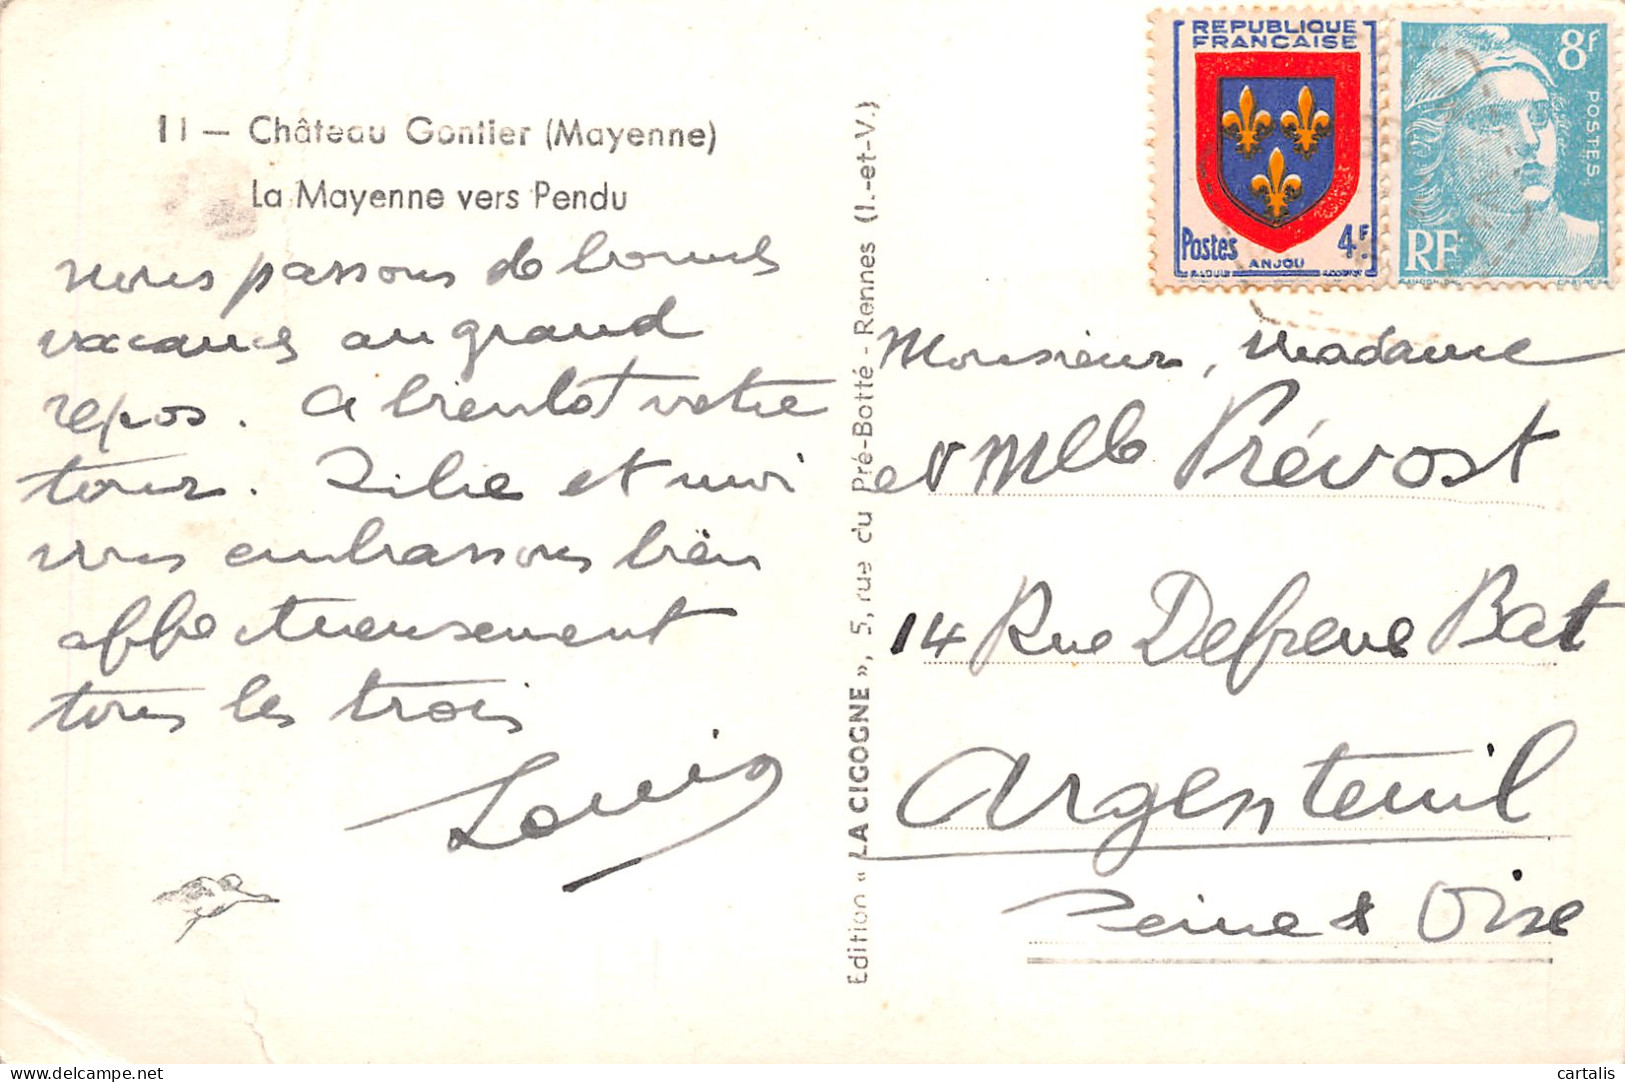 11 — Château Gontier (Mayenne)
La Mayenne vers Pendu
nous passons de bonnes
vacances au grand
repos. A bientôt votre
tour. et moi
vous embrassons bien
affectueusement
tous les trois
Louis
Edition « LA CIGOGNE », 5, rue du Pré-Botté - Rennes (I.-et-V.)
REPUBLIQUE
FRANÇAISE
Postes 4F.
ANJOU
8f
POSTES
RF
Monsieur, Madame
et Mlle Prévost
14 Rue Defresne Bast
Argenteuil
Seine & Oise
cartalis
delcampe.net